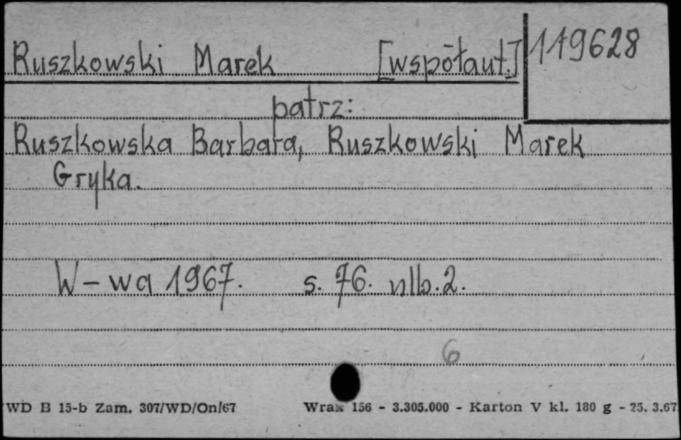 Ruszkowski Marek [współaut.] 119628
patrz:
Ruszkowska Barbara, Ruszkowski Marek
Gryka.
W-wa 1967. s. 76. nlb. 2.
6
WD B 15-b Zam. 307/WD/On/67 Wrax 156 - 3.305.000 - Karton V kl. 180 g - 25. 3.67